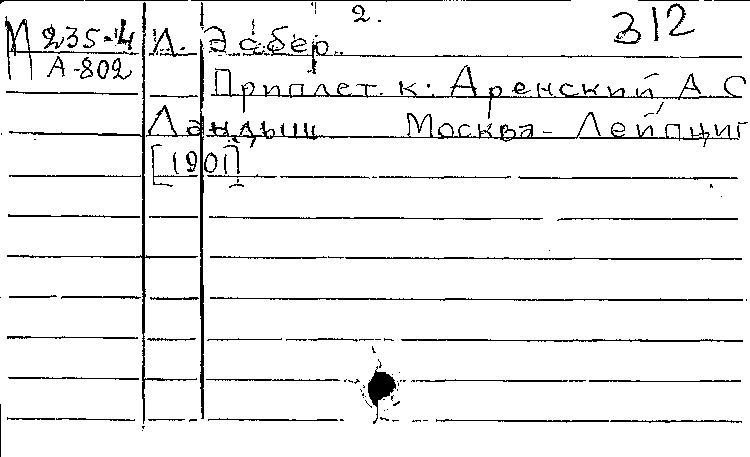 2.
312
М 235-4 Л. Эсбер.
А-802
Приплет. к: Аренский, А С
Ландыш Москва - Лейпциг
[1901]